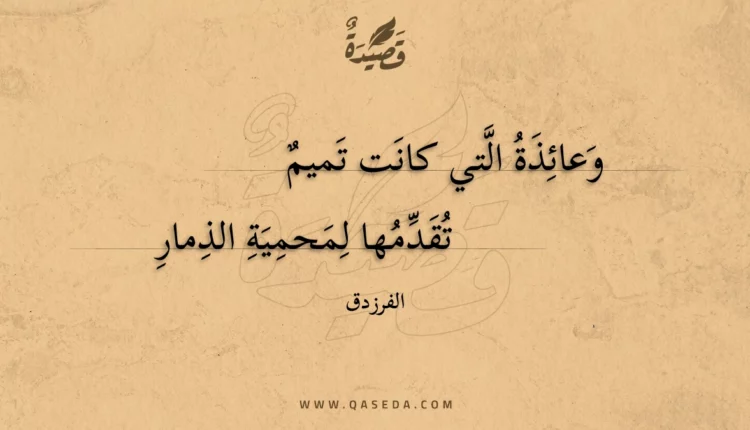 قَصِيْدَةٌ
وَعائِذَةُ الَّتي كانَت تَميمٌ
تُقَدِّمُها لِمَحمِيَةِ الذِمارِ
الفرزدق
WWW.QASEDA.COM